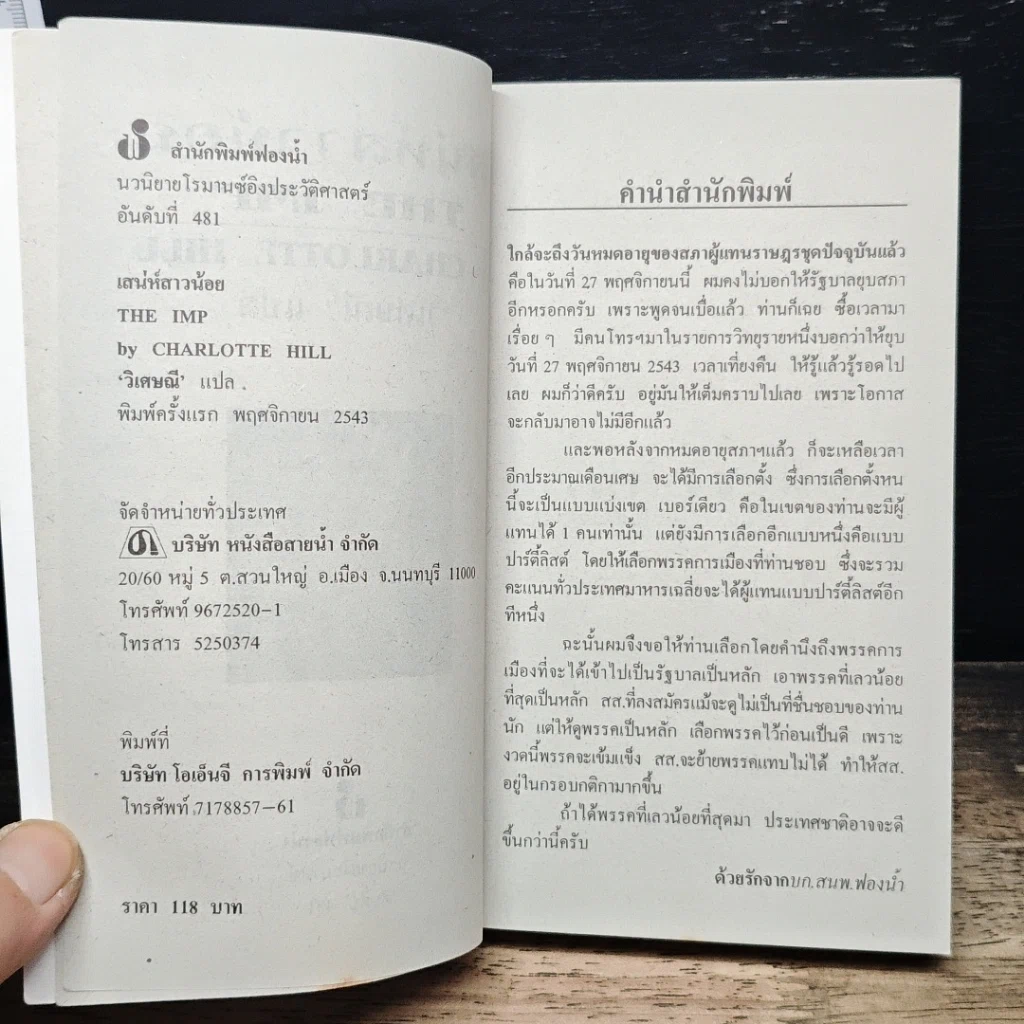 สำนักพิมพ์ฟองน้ำ
นวนิยายโรมานซ์อิงประวัติศาสตร์
อันดับที่ 481
เสน่ห์สาวน้อย
THE IMP
by CHARLOTTE HILL
'วิเศษณี' แปล .
พิมพ์ครั้งแรก พฤศจิกายน 2543
จัดจำหน่ายทั่วประเทศ
บริษัท หนังสือสายน้ำ จำกัด
20/60 หมู่ 5 ต.สวนใหญ่ อ.เมือง จ.นนทบุรี 11000
โทรศัพท์ 9672520-1
โทรสาร 5250374
พิมพ์ที่
บริษัท โอเอ็นจี การพิมพ์ จำกัด
โทรศัพท์ 7178857-61
ราคา 118 บาท
คำนำสำนักพิมพ์
ใกล้จะถึงวันหมดอายุของสภาผู้แทนราษฎรชุดปัจจุบันแล้ว
คือในวันที่ 27 พฤศจิกายนนี้ ผมคงไม่บอกให้รัฐบาลยุบสภา
อีกหรอกครับ เพราะพูดจนเบื่อแล้ว ท่านก็เฉย ซื้อเวลามา
เรื่อย ๆ มีคนโทรฯมาในรายการวิทยุรายหนึ่งบอกว่าให้ยุบ
วันที่ 27 พฤศจิกายน 2543 เวลาเที่ยงคืน ให้รู้แล้วรู้รอดไป
เลย ผมก็ว่าดีครับ อยู่มันให้เต็มคราบไปเลย เพราะโอกาส
จะกลับมาอาจไม่มีอีกแล้ว
และพอหลังจากหมดอายุสภาฯแล้ว ก็จะเหลือเวลา
อีกประมาณเดือนเศษ จะได้มีการเลือกตั้ง ซึ่งการเลือกตั้งหน
นี้จะเป็นแบบแบ่งเขต เบอร์เดียว คือในเขตของท่านจะมีผู้
แทนได้ 1 คนเท่านั้น แต่ยังมีการเลือกอีกแบบหนึ่งคือแบบ
ปาร์ตี้ลิสต์ โดยให้เลือกพรรคการเมืองที่ท่านชอบ ซึ่งจะรวม
คะแนนทั่วประเทศมาหารเฉลี่ยจะได้ผู้แทนแบบปาร์ตี้ลิสต์อีก
ทีหนึ่ง
ฉะนั้นผมจึงขอให้ท่านเลือกโดยคำนึงถึงพรรคการ
เมืองที่จะได้เข้าไปเป็นรัฐบาลเป็นหลัก เอาพรรคที่เลวน้อย
ที่สุดเป็นหลัก สส.ที่ลงสมัครแม้จะดูไม่เป็นที่ชื่นชอบของท่าน
นัก แต่ให้ดูพรรคเป็นหลัก เลือกพรรคไว้ก่อนเป็นดี เพราะ
งวดนี้พรรคจะเข้มแข็ง สส.จะย้ายพรรคแทบไม่ได้ ทำให้สส.
อยู่ในกรอบกติกามากขึ้น
ถ้าได้พรรคที่เลวน้อยที่สุดมา ประเทศชาติอาจจะดี
ขึ้นกว่านี้ครับ
ด้วยรักจากบก.สนพ.ฟองน้ำ